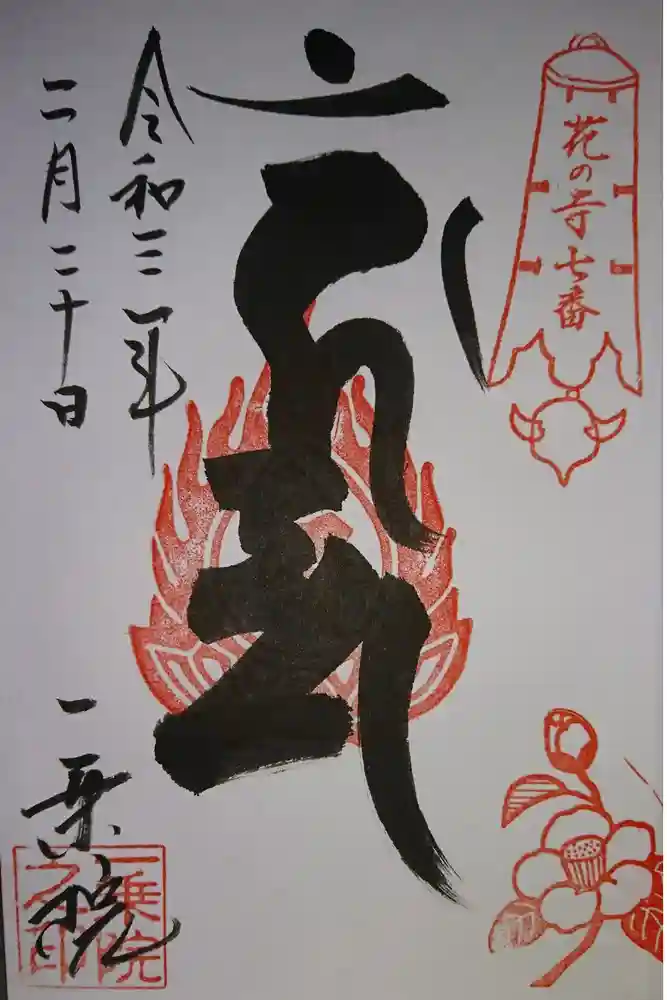 花の寺七番
令和三年
二月二十日
一乗院
一乗院
之印